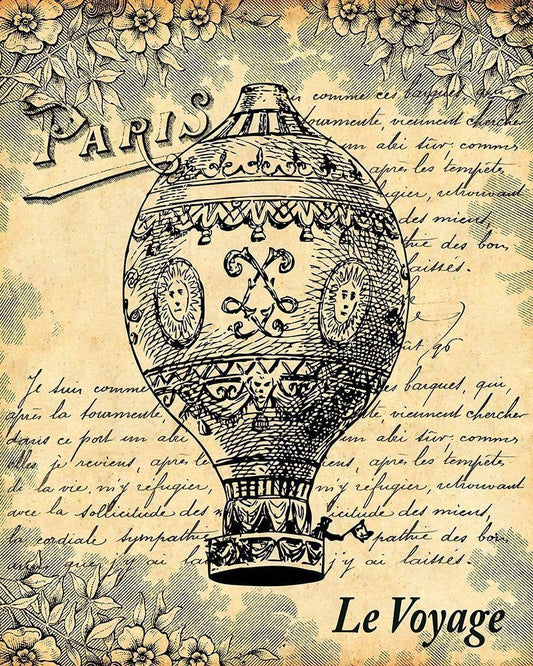 PARIS
comme ces barques qui,
tourmente, viennent chercher
un abri sûr; comme
apres les tempêtes
réfugier, retrouvant
des miens,
thie des bon
laissés.
96
Je suis comme
es barques, qui,
après la tourmente,
viennent chercher
dans ce port un abri
un abri sûr; comme
elles je reviens, après le
ens, apres les tempêtes
de la vie, m'y réfugier,
m'y réfugier, retrouvant
avec la sollicitude des
icitude des miens,
la cordiale sympathie
pathie des bons
amis que j'y ai la
j'y ai laissés.
Le Voyage